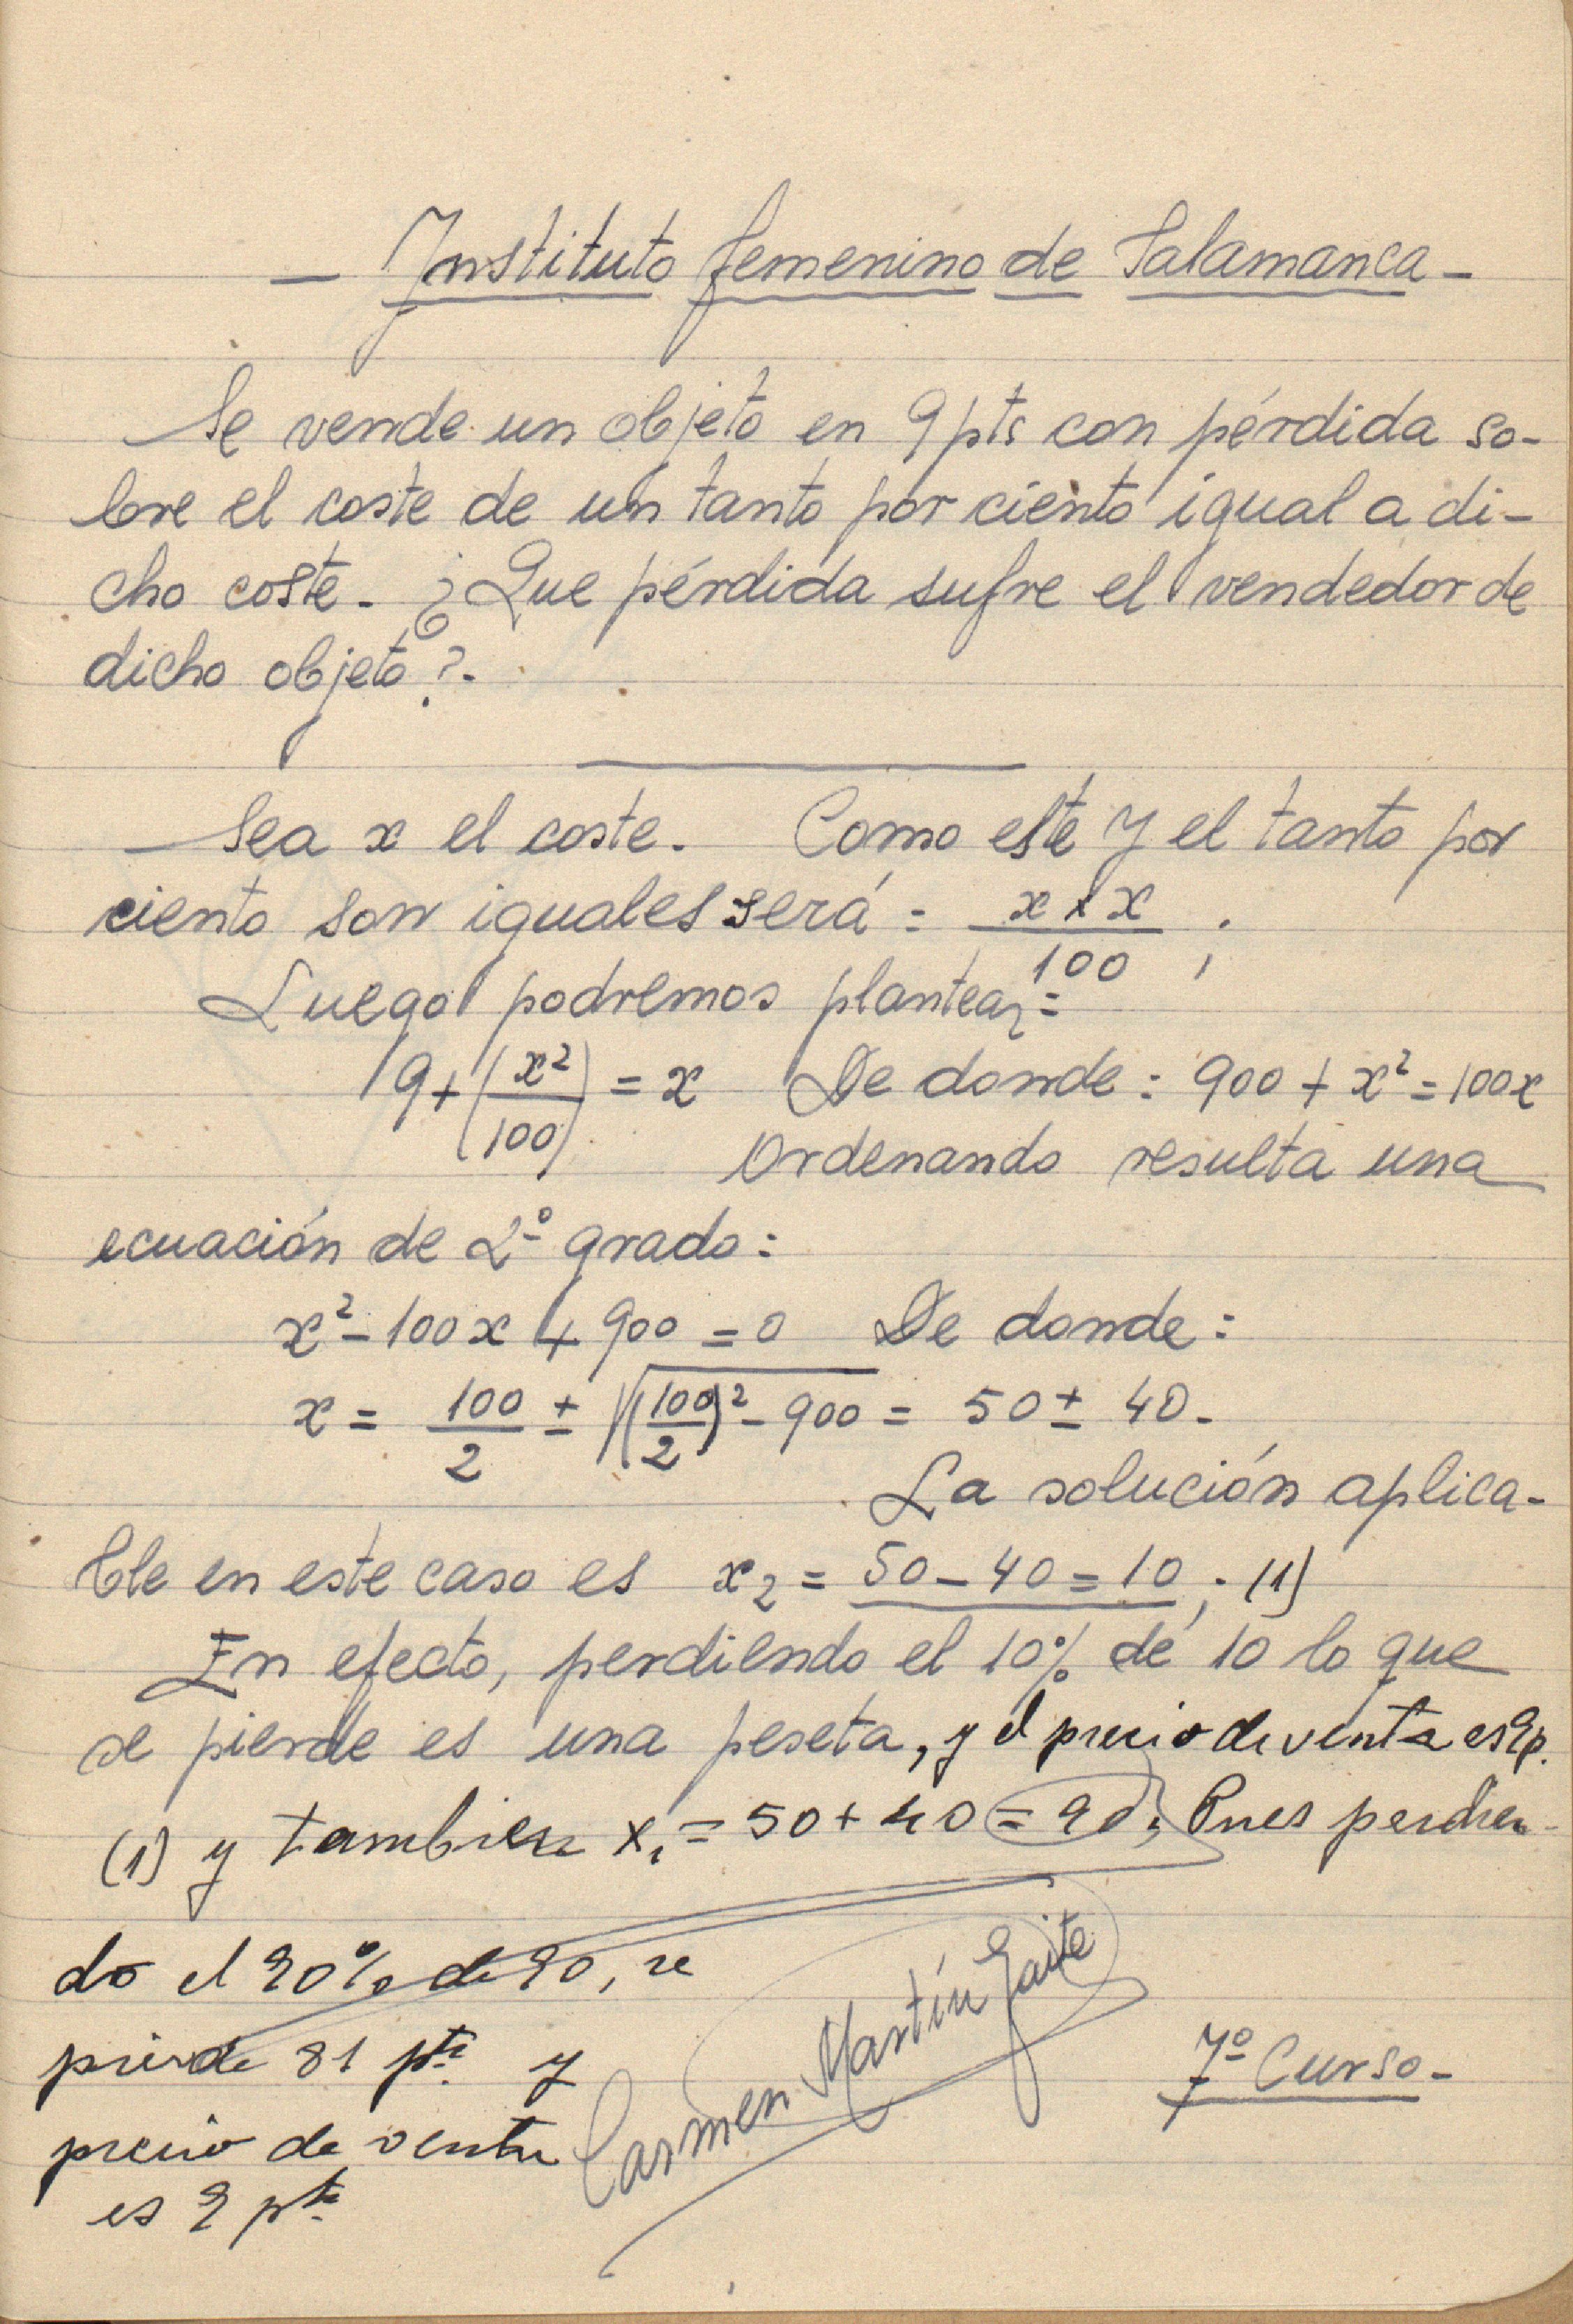 - Instituto femenino de Salamanca -
Se vende un objeto en 9 pts con pérdida so-
bre el coste de un tanto por ciento igual a di-
cho coste. ¿Que pérdida sufre el vendedor de
dicho objeto?.
Sea x el coste. Como este y el tanto por
ciento son iguales será = x × x / 100 ;
Luego podremos plantear =
9 + (x²/100) = x De donde: 900 + x² = 100x
Ordenando resulta una
ecuación de 2º grado:
x² - 100x + 900 = 0 De donde:
x = 100/2 ± √((100/2)² - 900) = 50 ± 40.
La solución aplica-
ble en este caso es x₂ = 50 - 40 = 10 ; (1)
En efecto, perdiendo el 10% de 10 lo que
se pierde es una peseta, y el precio de venta es 9 p.
(1) y tambien x₁ = 50 + 40 = 90; Pues perdien-
do el 90% de 90, se
pierde 81 pts y
precio de venta
es 9 pts
Carmen Martín Gaite
7º Curso-